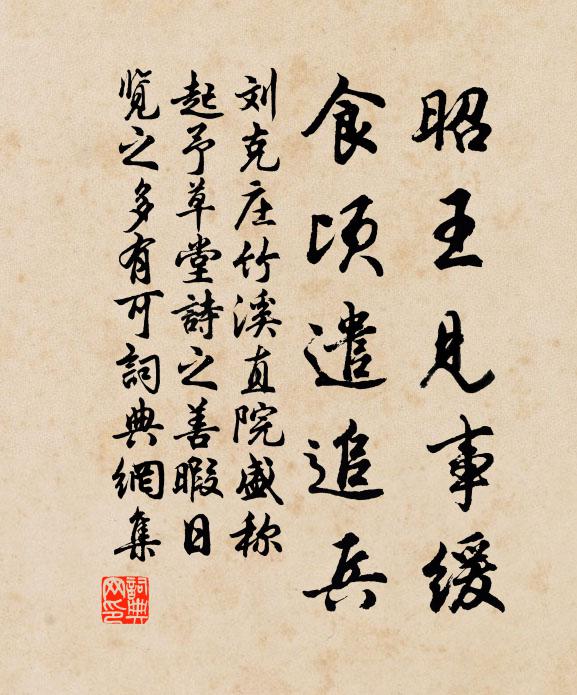 昭王見事緩
食頃遣追兵
刘克庄竹溪直院盛称
起予草堂詩之善暇日
覧之多有可詞典網集
詞典網印